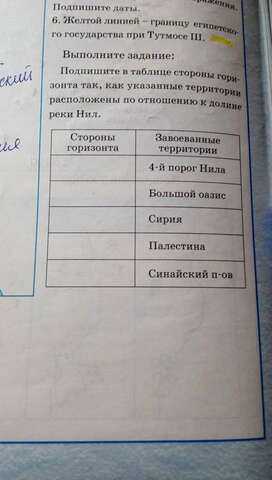 Подпишите даты.
6. Желтой линией – границу египетско-
го государства при Тутмосе III.
Выполните задание:
Подпишите в таблице стороны гори-
зонта так, как указанные территории
расположены по отношению к долине
реки Нил.
Стороны
горизонта
Завоеванные
территории
4-й порог Нила
Большой оазис
Сирия
Палестина
Синайский п-ов